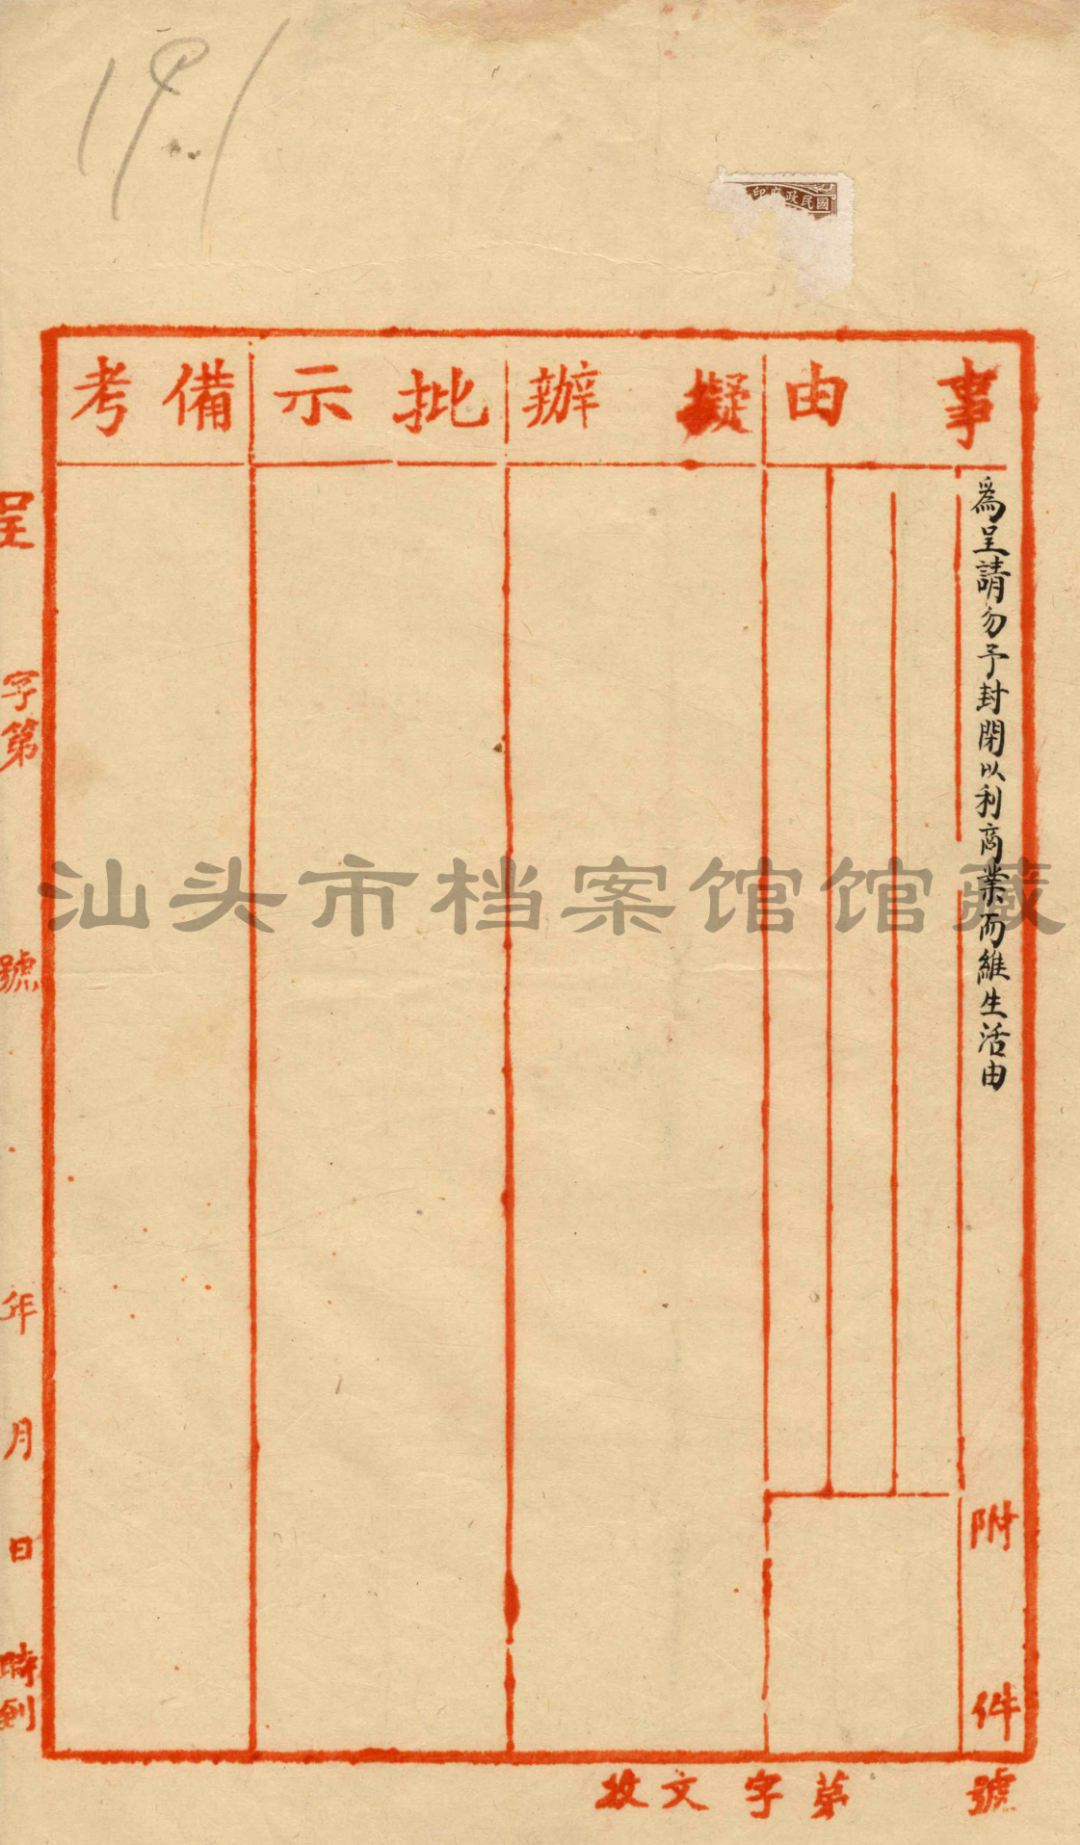 國民政府印
事由
擬辦
批示
備考
為呈請勿予封閉以利商業而維生活由
附件
呈 字第 號 年 月 日 時到
收文字第 號
汕头市档案馆馆藏